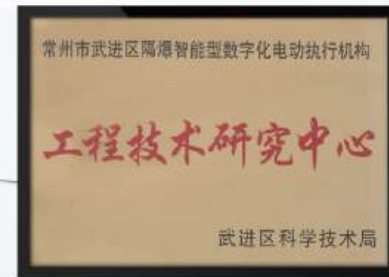 常州市武进区隔爆智能型数字化电动执行机构
工程技术研究中心
武进区科学技术局